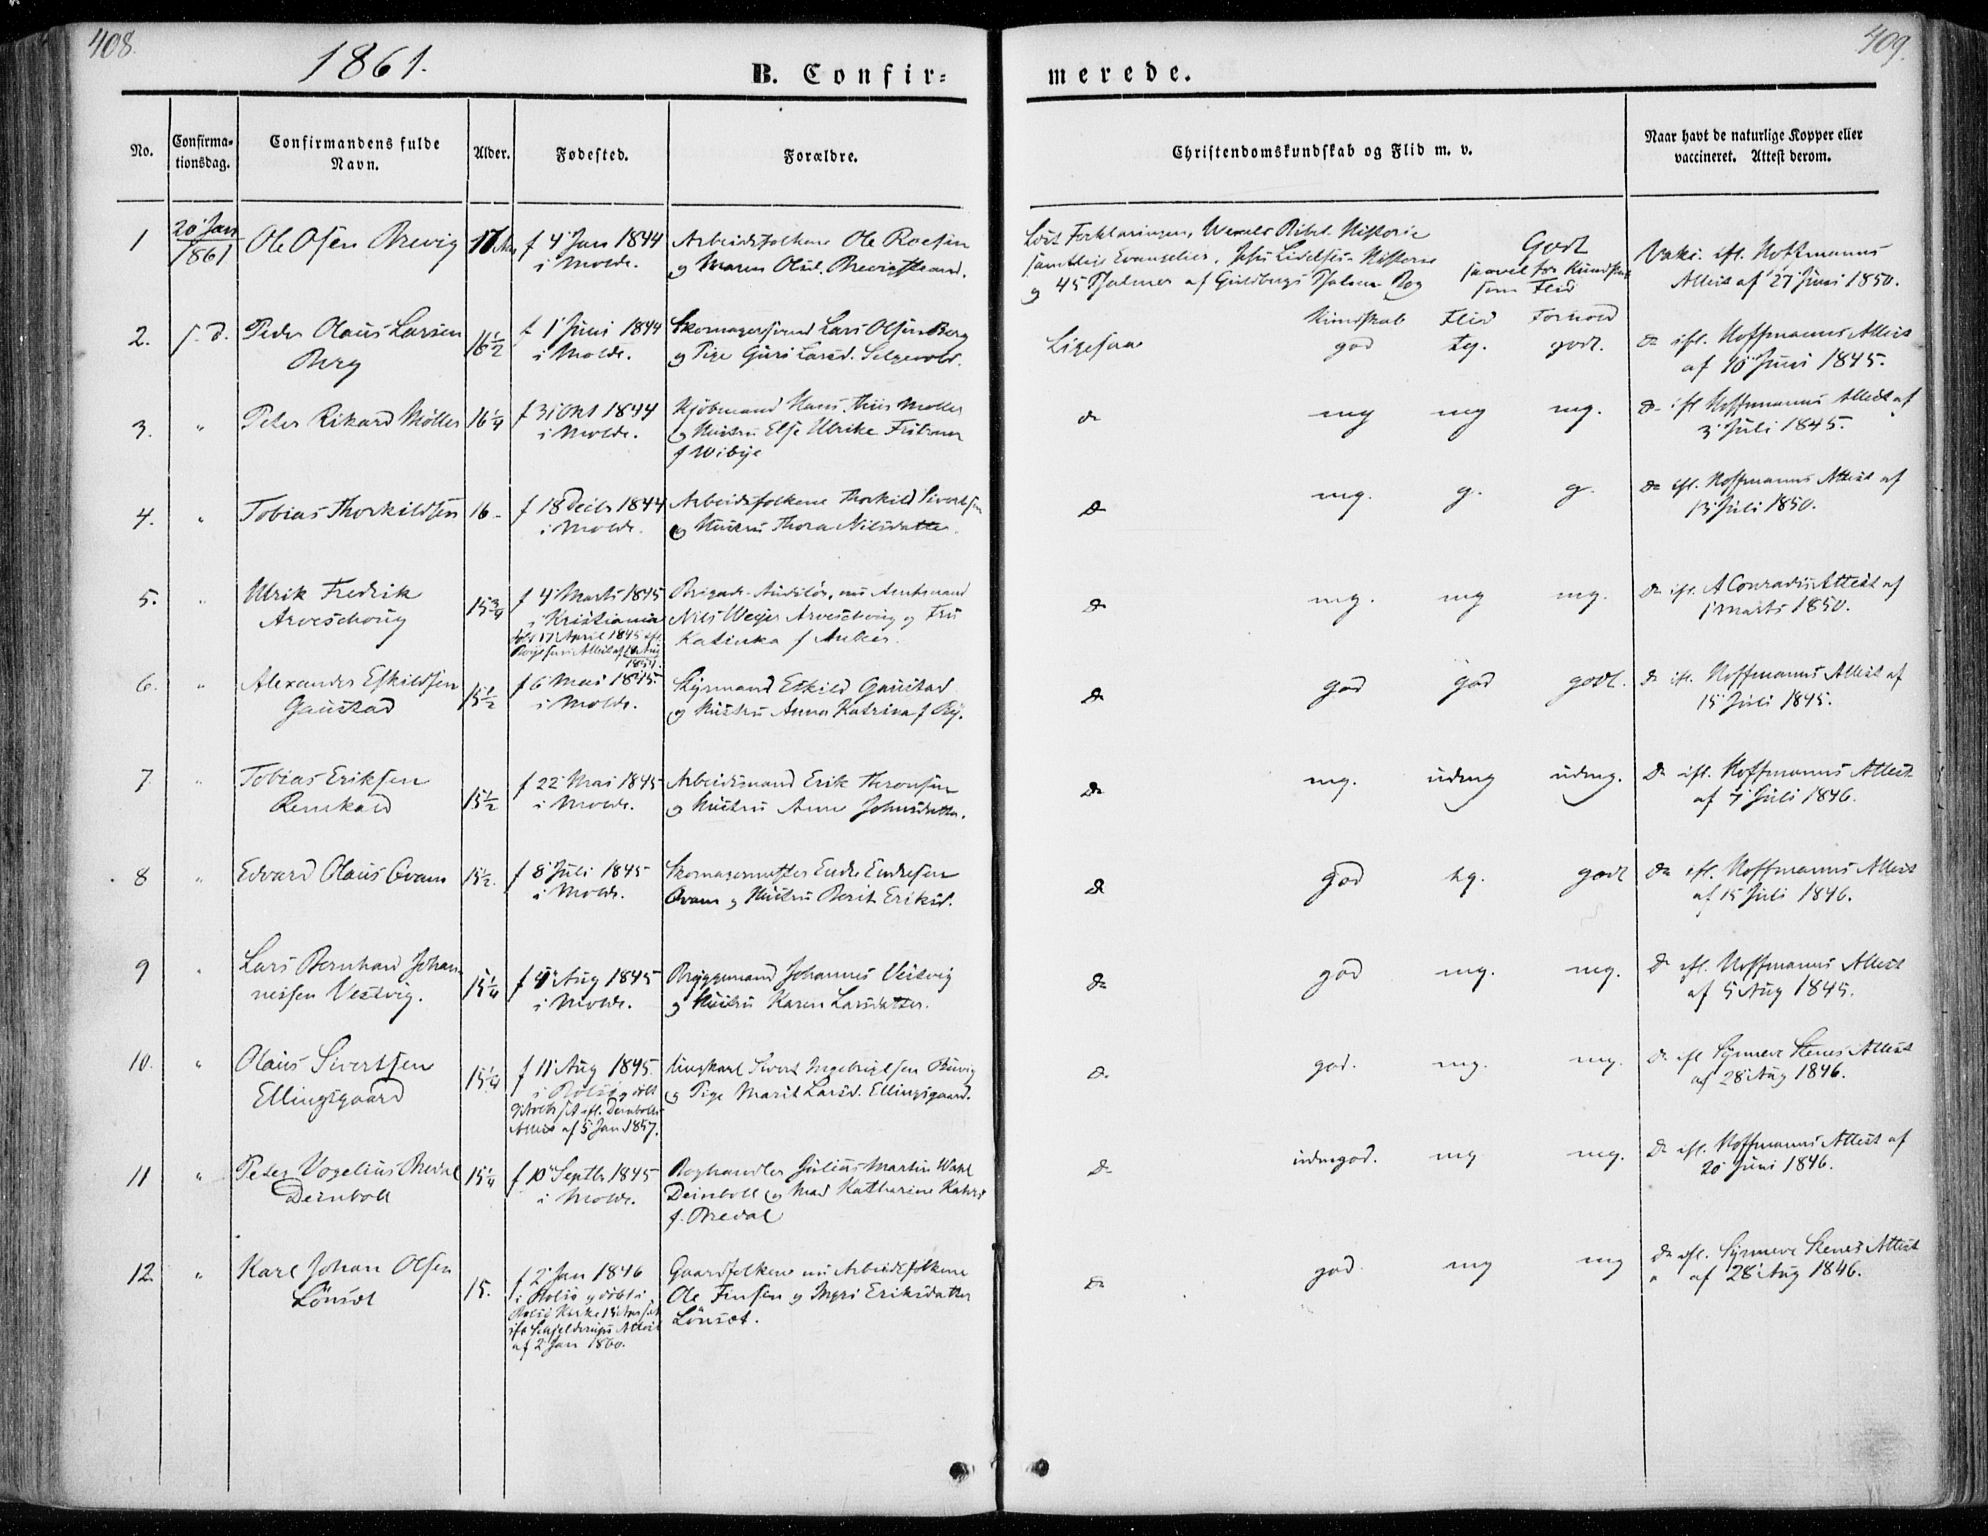 408.
409.
1861.
B. Confir=
merede.
No.
Confirma=
tionsdag.
Confirmandens fulde
Navn.
Alder.
Fødested.
Forældre.
Christendomskundskab og Flid m. v.
Naar havt de naturlige Kopper eller
vaccineret. Attest derom.
1
20 Jan
1861
Ole Olsen Brevig
17
f 4 Jan 1844
i Molde.
Arbeidsfolkene Ole Roesen
og Maren Olsd.
Læst Forklaringen, Wexels Bibel Historie
samtlige Evangelier, Jesu Lidelses Historie
og 45 Psalmer af Guldbergs Psalme Bog
Godt
saavel for Kundskab
som Flid
Vakc. efl. Hoffmanns
Attest af 27 Juni 1850.
2.
s. d.
Peder Olaus Larsen
Berg
16 1/2
f 1 Juni 1844
i Molde.
Skomagersvend Lars Olsen Berg
og Pige Guri Larsd. Selgevold.
Ligesaa
Kundskab Flid Forhold
god tg. godt.
Do efl. Hoffmanns Attest
af 10 Juni 1845.
3.
"
Peter Rikard Møller
16 1/4
f 31 Okt 1844
i Molde.
Kjøbmand Hans Thiis Møller
og Hustru Else Ulrike
f Wibye
Do
mg mg mg.
Do efl Hoffmanns Attest af
3 Juli 1845.
4.
"
Tobias Thorkildsen
16
f 18 Decbr 1844
i Molde.
Arbeidsfolkene Thorkild Sivertsen
og Hustru Thora Nilsdatter.
Do
mg. g. g.
Do efl. Hoffmanns Attest af
13 Juli 1850.
5.
"
Ulrik Fredrik
Arveschoug
15 3/4
f 4 Marts 1845
i Kristiania
døbt 17 April 1845 efl.
Brigade Auditør, nu Amtmand
Nils Weyer Arveschoug og Fru
Katinka f Anker.
Do
mg. mg mg.
Do efl. A Conradis Attest af
1 marts 1850.
6.
"
Alexander Eskildsen
Gaustad
15 1/2
f 6 Mai 1845.
i Molde.
Styrmand Eskild Gaustad
og Hustru Anna Katrina f Ry.
Do
god god godt.
Do efl. Hoffmanns Attest af
15 Juli 1845.
7.
"
Tobias Eriksen
15 1/2
f 22 Mai 1845
i Molde.
Arbeidsmand Erik Thronsen
og Hustru Anne Johnsdatter.
Do
mg. udmg udmg.
Do efl. Hoffmanns Attest
af 7 Juli 1846.
8
"
Edvard Olaus Qvam
15 1/2.
f 8 Juli 1845
i Molde.
Skomagermester Endre Endresen
Qvam og Hustru Berit Eriksd.
Do
god tg. godt
Do efl. Hoffmanns Attest
af 15 Juli 1846.
9
"
Lars Bernhard Johan
nessen Vestvig.
15 1/4
f 4 Aug 1845
i Molde.
Bryggemand Johannes Vestvig
og Hustru Karen Larsdatter.
Do
god mg. mg.
Do efl. Hoffmanns Attest
af 5 Aug 1845.
10.
"
Olaus Sivertsen
Ellingsgaard
15 1/4
f 11 Aug 1845.
i Bolsø og døbt
efl. Deinbolls
Attest af 5 Jan 1857.
Ungkarl Sivert Ingebrigtsen
og Pige Marit Larsd. Ellingsgaard.
Do
god. mg. mg.
Do efl Synneve Stenes Attest
af 28 Aug 1846.
11
"
Peter Vogelius Bredal
Deinboll
15 1/4
f 10 Septbr 1845
i Molde.
Boghandler Julius Martin Wahl
Deinboll og Mad Katharine
f. Bredal
Do
udmgod. mg mg.
Do efl. Hoffmanns Attest af
20 Juni 1846.
12.
"
Karl Johan Olsen
Lønset
15.
f 2 Jan 1846
i Bolsø og døbt i
Bolsø Kirke
efl Schjelderups Attest
af 2 Jan 1860.
Gaardfolkene nu Arbeidsfolkene
Ole Finsen og Ingri Eriksdatter
Lønset.
Do
god. mg mg
Do efl. Synneve Stenes Attest
af 28 Aug 1846.